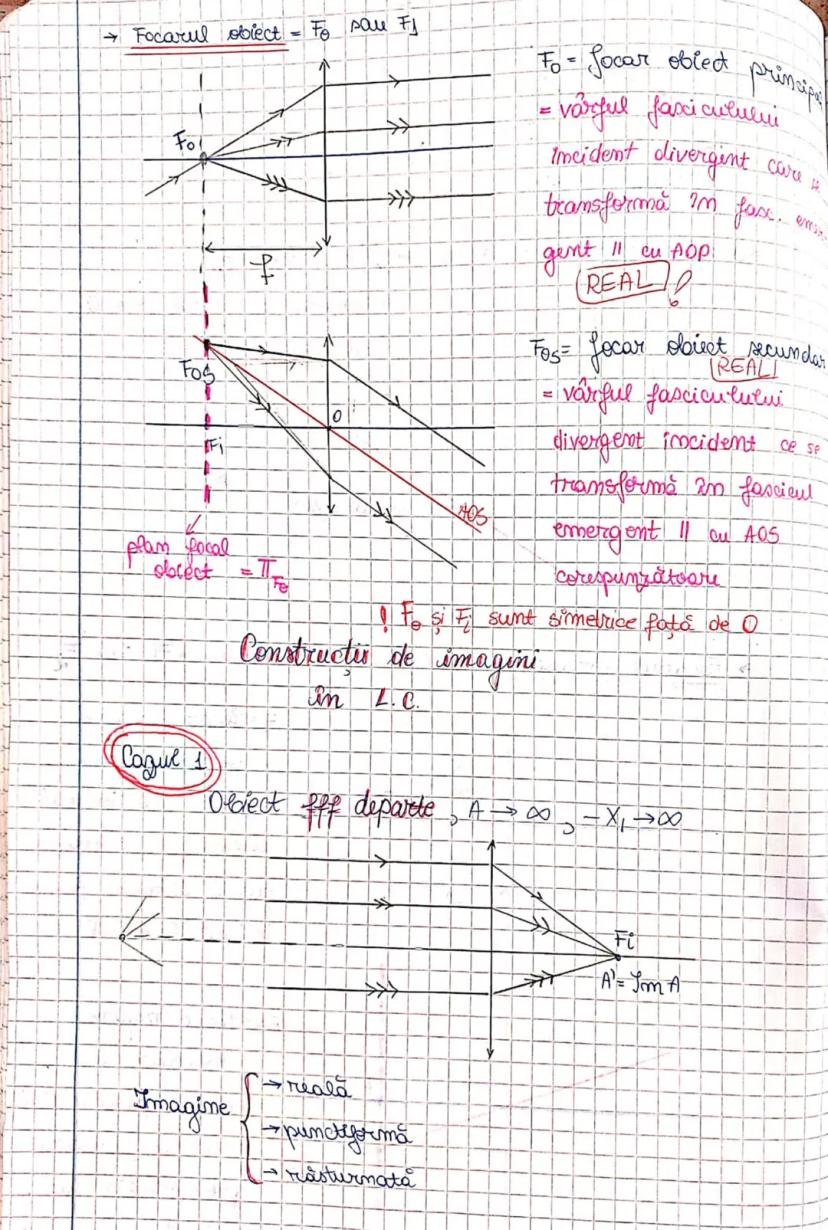 → Focarul obiect = Fo sau F1
Fo
f
Fo = focar obiect principal
= vârful fasciculului
incident divergent care
transformă în fasc.
gent || cu AOP
REAL !
FOS
O
Fi
AOS
plan focal
obiect = πFo
FOS = focar obiect secundar
REAL
= vârful fasciculului
divergent incident ce se
transformă în fascicul
emergent || cu AOS
corespunzătoare
! Fo și Fi sunt simetrice față de O
Construcții de imagini
în L.C.
Cazul 1
Obiect fff departe, A → ∞, -X1 → ∞
Fi
A' = Im A
Imagine
→ reală
→ punctiformă
→ răsturnată